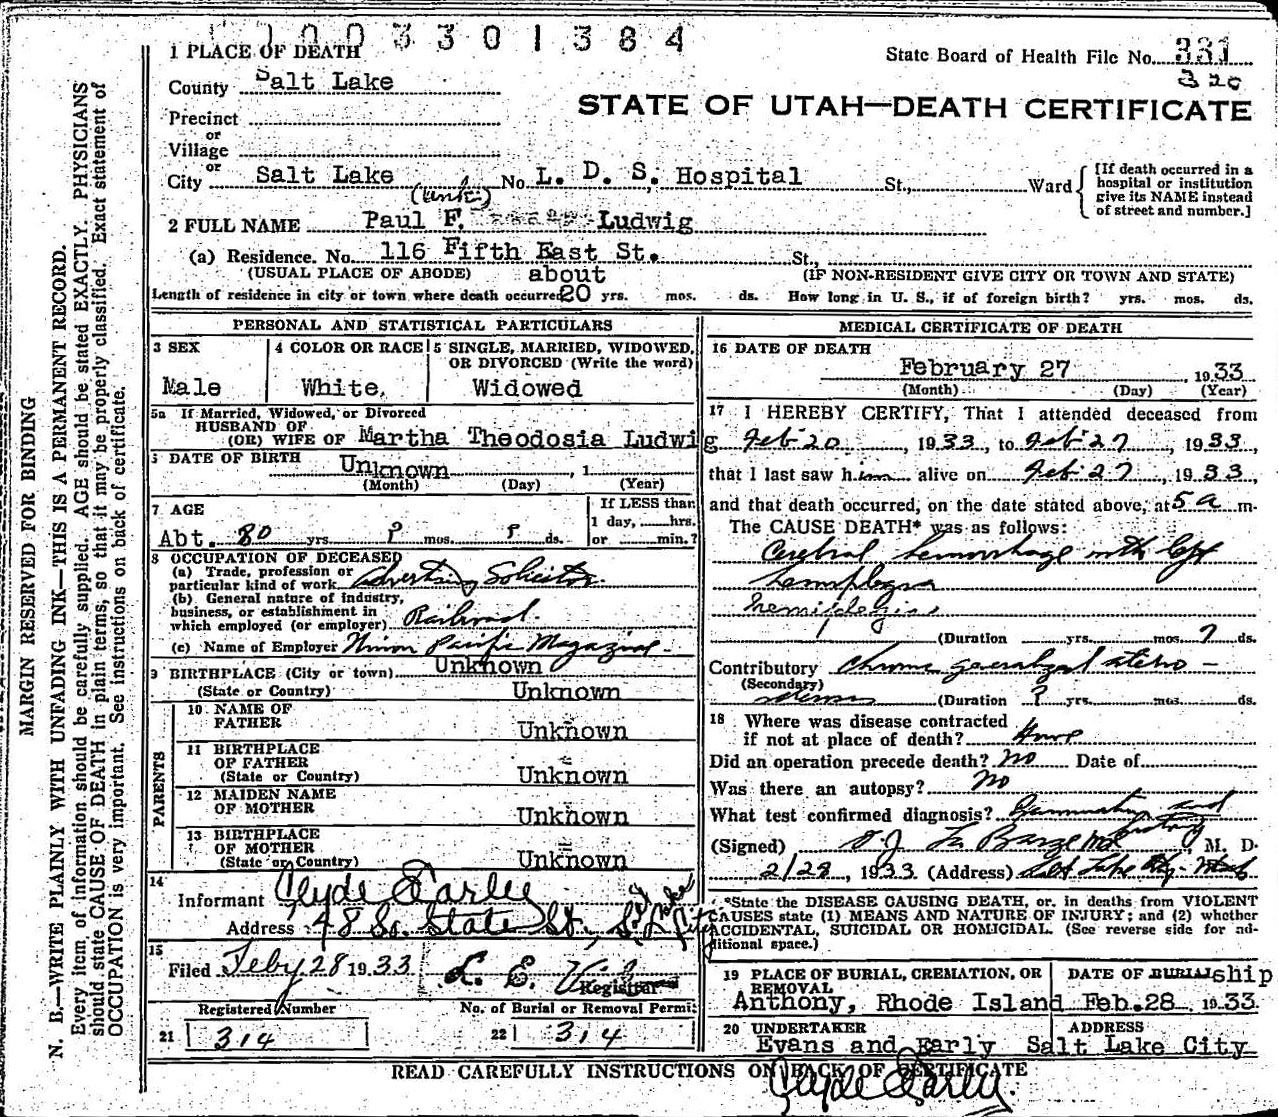 1003301384
1 PLACE OF DEATH
State Board of Health File No. 331
320
County Salt Lake
STATE OF UTAH—DEATH CERTIFICATE
Precinct
or
Village
or
City Salt Lake No. L. D. S. Hospital St., Ward
[If death occurred in a
hospital or institution
give its NAME instead
of street and number.]
(unk)
2 FULL NAME Paul F. Ludwig
(a) Residence. No. 116 Fifth East St. St.,
(USUAL PLACE OF ABODE) about (IF NON-RESIDENT GIVE CITY OR TOWN AND STATE)
Length of residence in city or town where death occurred 20 yrs. mos. ds. How long in U. S., if of foreign birth? yrs. mos. ds.
PERSONAL AND STATISTICAL PARTICULARS
3 SEX
Male
4 COLOR OR RACE
White,
5 SINGLE, MARRIED, WIDOWED,
OR DIVORCED (Write the word)
Widowed
5a If Married, Widowed, or Divorced
HUSBAND OF
(OR) WIFE OF Martha Theodosia Ludwig
DATE OF BIRTH Unknown, 1
(Month) (Day) (Year)
7 AGE
Abt. 80 yrs. ? mos. ? ds.
If LESS than
1 day, hrs.
or min.?
8 OCCUPATION OF DECEASED
(a) Trade, profession or
particular kind of work Advertising Solicitor.
(b) General nature of industry,
business, or establishment in
which employed (or employer) Railroad.
(c) Name of Employer Union Pacific Magazine
9 BIRTHPLACE (City or town) Unknown
(State or Country) Unknown
PARENTS
10 NAME OF
FATHER Unknown
11 BIRTHPLACE
OF FATHER
(State or Country) Unknown
12 MAIDEN NAME
OF MOTHER Unknown
13 BIRTHPLACE
OF MOTHER
(State or Country) Unknown
14
Informant Clyde Earley
Address 48 So. State St., Salt Lake City
15
Filed Feby 28 1933 L. E.
Registrar
Registered Number
21 314
No. of Burial or Removal Permit
22 314
MEDICAL CERTIFICATE OF DEATH
16 DATE OF DEATH
February 27, 1933
(Month) (Day) (Year)
17 I HEREBY CERTIFY, That I attended deceased from
Feb 20, 1933, to Feb 27, 1933,
that I last saw him alive on Feb 27, 1933,
and that death occurred, on the date stated above, at 5 a m.
The CAUSE DEATH* was as follows:
Cerebral hemorrhage with left
hemiplegia
hemiplegia
(Duration yrs. mos. 7 ds.
Contributory Chronic generalized arterio-
(Secondary)
(Duration ? yrs. mos. ds.
18 Where was disease contracted
if not at place of death? Home
Did an operation precede death? No Date of
Was there an autopsy? No
What test confirmed diagnosis? Examination and
history
(Signed) La Barge, M. D.
2/28, 1933 (Address) Salt Lake City
*State the DISEASE CAUSING DEATH, or, in deaths from VIOLENT
CAUSES state (1) MEANS AND NATURE OF INJURY; and (2) whether
ACCIDENTAL, SUICIDAL OR HOMICIDAL. (See reverse side for ad-
ditional space.)
19 PLACE OF BURIAL, CREMATION, OR
REMOVAL
Anthony, Rhode Island
DATE OF BURIAL ship
Feb. 28 1933
20 UNDERTAKER
Evans and Early
ADDRESS
Salt Lake City
Clyde Earley.
READ CAREFULLY INSTRUCTIONS ON BACK OF CERTIFICATE
MARGIN RESERVED FOR BINDING
N. B.—WRITE PLAINLY WITH UNFADING INK—THIS IS A PERMANENT RECORD.
Every item of information should be carefully supplied. AGE should be stated EXACTLY. PHYSICIANS
should state CAUSE OF DEATH in plain terms, so that it may be properly classified. Exact statement of
OCCUPATION is very important. See instructions on back of certificate.